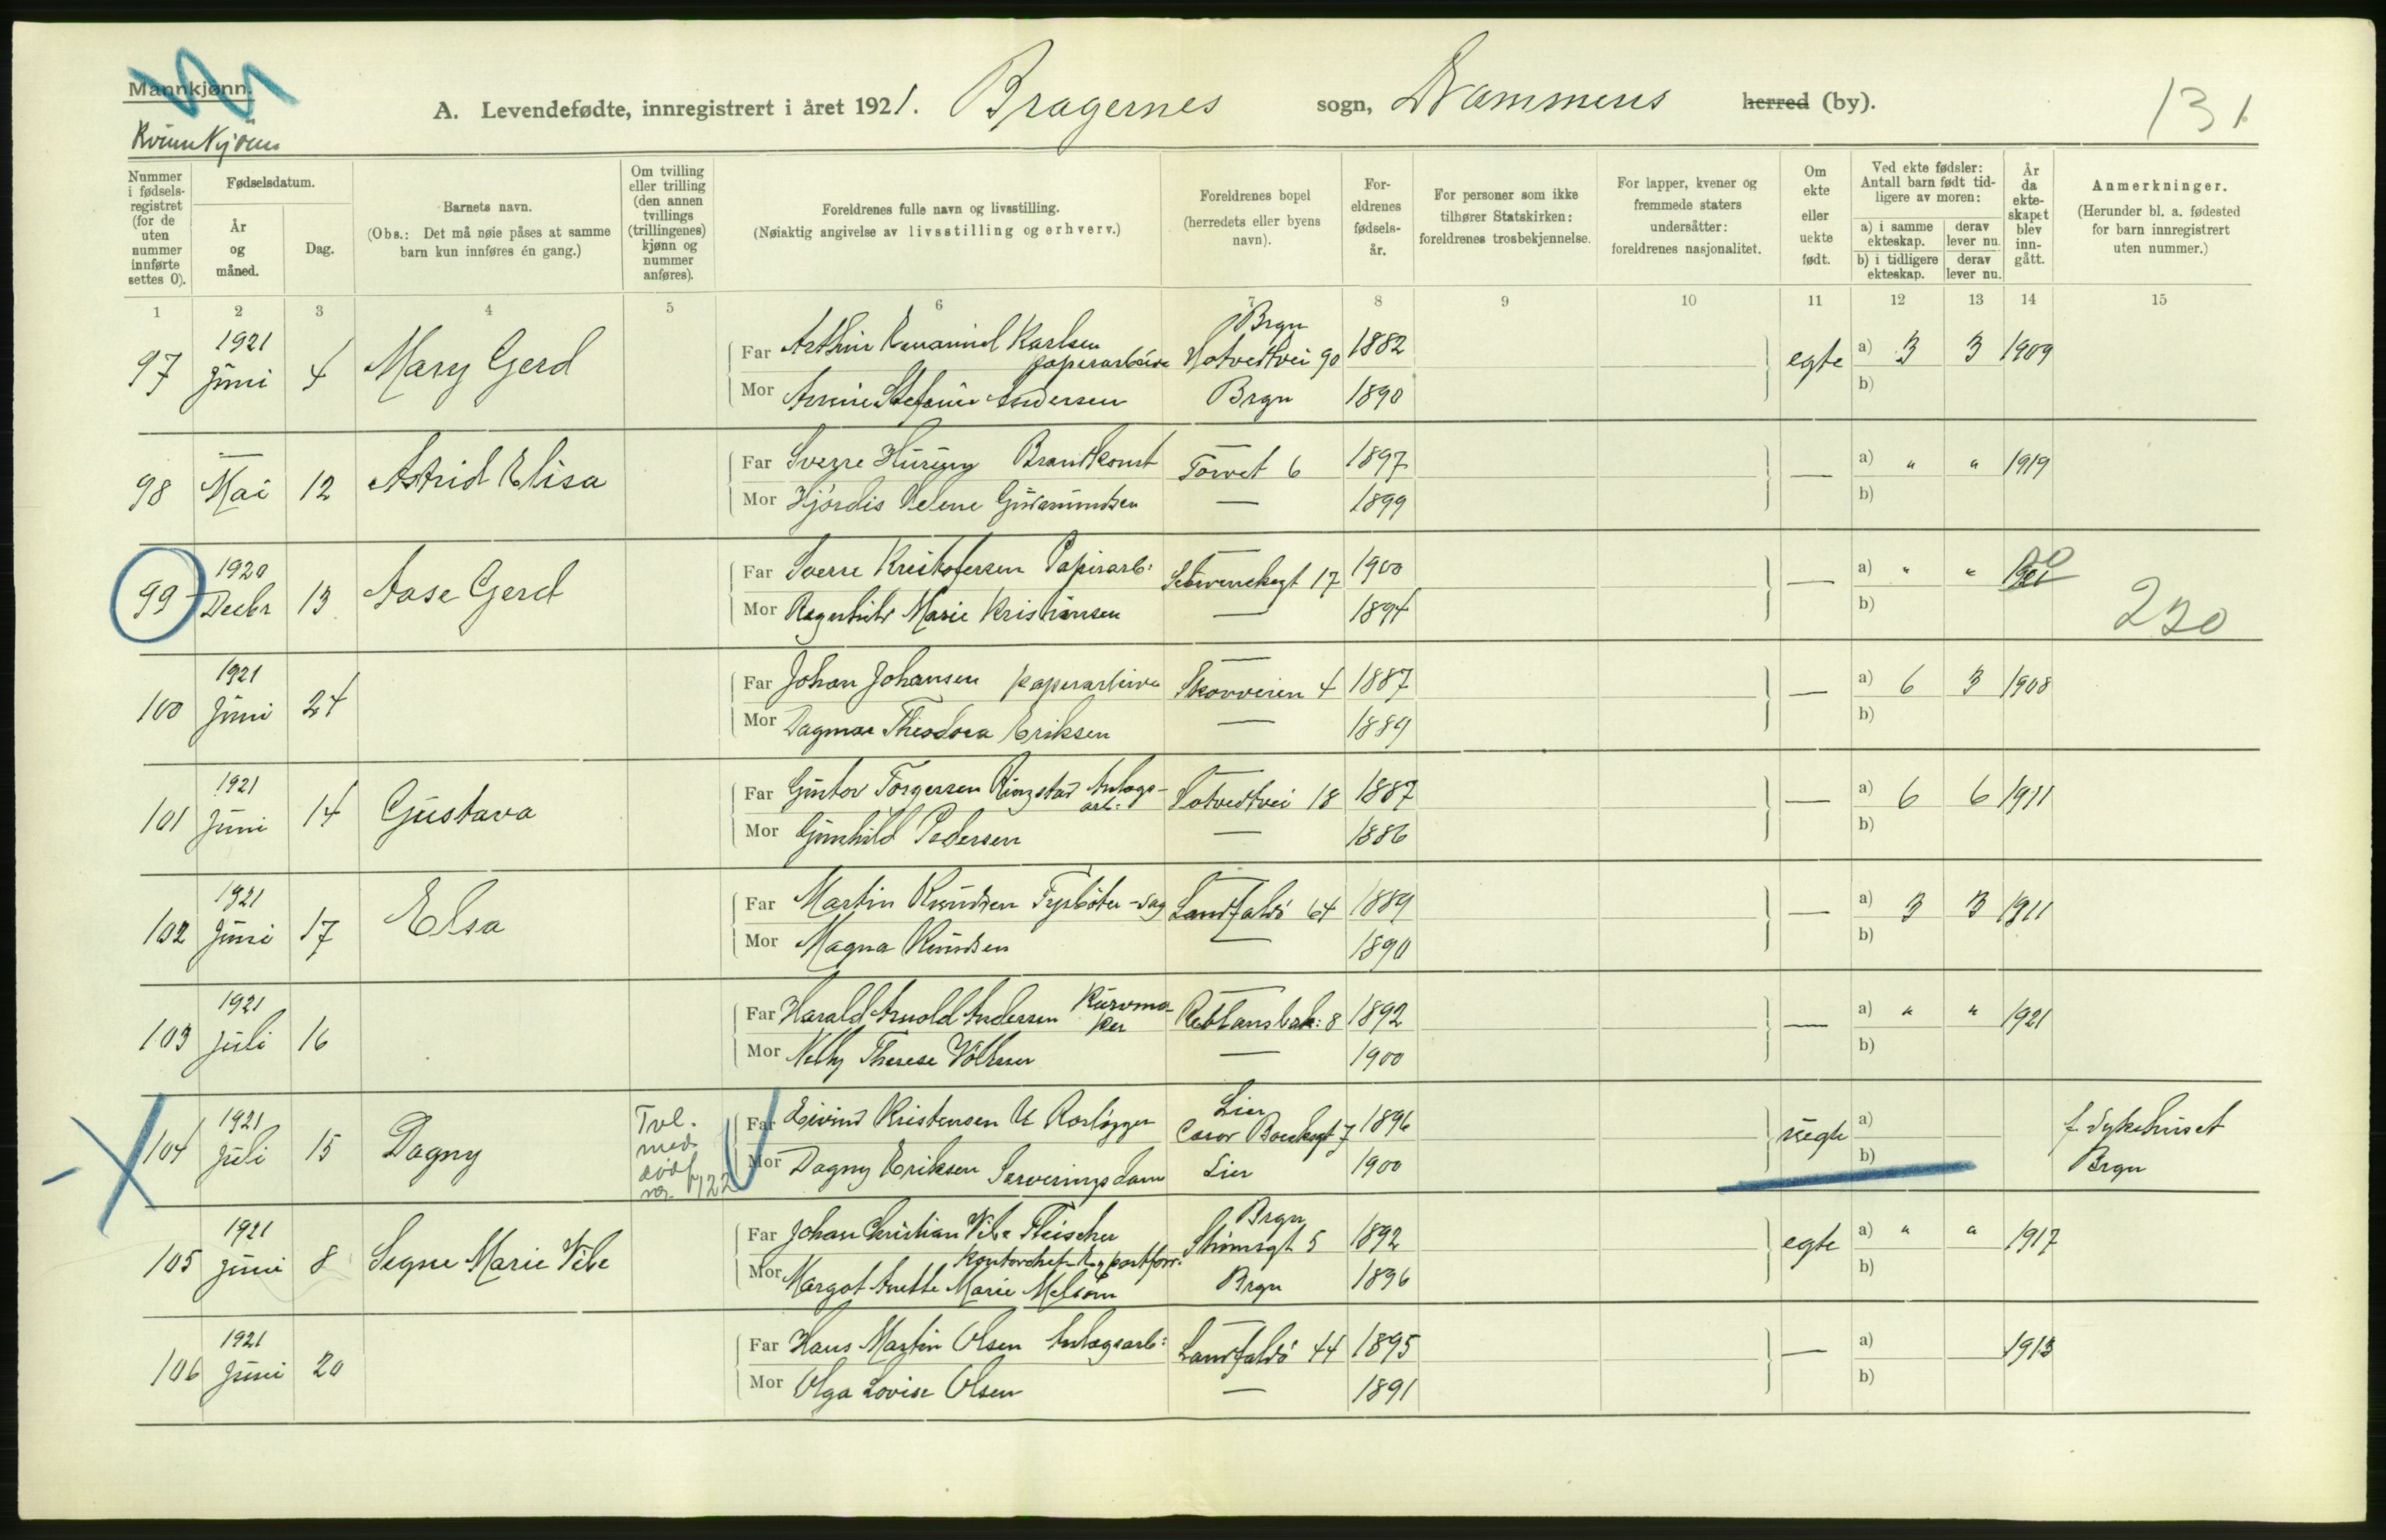 Mannkjønn.
Kvinnkjønn
A. Levendefødte, innregistrert i året 1921. Bragernes sogn, Drammens herred (by).
131
Nummer i fødsels-registret (for de uten nummer innførte settes 0).
Fødselsdatum.
År og måned.
Dag.
Barnets navn.
(Obs.: Det må nøie påses at samme barn kun innføres én gang.)
Om tvilling eller trilling (den annen tvillings (trillingenes) kjønn og nummer anføres).
Foreldrenes fulle navn og livsstilling.
(Nøiaktig angivelse av livsstilling og erhverv.)
Foreldrenes bopel (herredets eller byens navn).
For-eldrenes fødsels-år.
For personer som ikke tilhører Statskirken: foreldrenes trosbekjennelse.
For lapper, kvener og fremmede staters undersåtter: foreldrenes nasjonalitet.
Om ekte eller uekte født.
Ved ekte fødsler: Antall barn født tid-ligere av moren:
a) i samme ekteskap. derav lever nu.
b) i tidligere ekteskap. derav lever nu.
År da ekte-skapet blev inn-gått.
Anmerkninger.
(Herunder bl. a. fødested for barn innregistrert uten nummer.)
1 2 3 4 5 6 7 8 9 10 11 12 13 14 15
97 1921 Juni 4 Mary Gerd
Far Arthur Emanuel Karlsen papirarbeider Brgn Hotvedtvei 90 1882 egte a) 3 3 1909
Mor Annie Stefanie Andersen Brgn 1890 b)
98 — Mai 12 Astrid Elisa
Far Sverre Hüring Brandkonst — Torvet 6 1897 — a) " " 1919
Mor Hjördis Helene Gudmundsen — 1899 b)
99 1920 Decbr 13 Aase Gerd
Far Sverre Kristofersen Papirarb: — Schwenckegt 17 1900 — a) " " 1920
Mor Ragnhild Marie Kristiansen — 1894 b)
230
100 1921 Juni 24
Far Johan Johansen papirarbeider — Skovveien 4 1887 — a) 6 3 1908
Mor Dagmar Theodora Eriksen — 1889 b)
101 1921 Juni 14 Gustava
Far Guntov Torgersen Ringstad Anlags-arb. — Hotvedtvei 18 1887 — a) 6 6 1911
Mor Gunhild Pedersen — 1886 b)
102 1921 Juni 17 Elsa
Far Martin Knudsen Fyrböter - sag — Landfaldö 64 1889 — a) 3 3 1911
Mor Magna Knudsen — 1890 b)
103 1921 Juli 16
Far Harald Arnold Andersen Kurvmaker — Toldansbak: 8 1892 — a) " " 1921
Mor Nelly Therese — 1900 b)
104 1921 Juli 15 Dagny Tvl. med dödf nr. 122
Far Eivind Kristensen Rørlægger Lier 1896 uegte a) f. Sykehuset
Mor Dagny Eriksen Serveringsdame Lier 1900 b) Brgn
105 1921 Juni 8 Segne Marie Vibe
Far Johan Christian Vibe Fleischer Kontorchef Exportforr. Brgn Strömsgt 5 1892 egte a) " " 1917
Mor Margot Anette Marie Melsom Brgn 1896 b)
106 1921 Juni 20
Far Hans Martin Olsen Anlagsarb: — Landfaldö 44 1895 — a) 1913
Mor Olga Lovise Olsen — 1891 b)